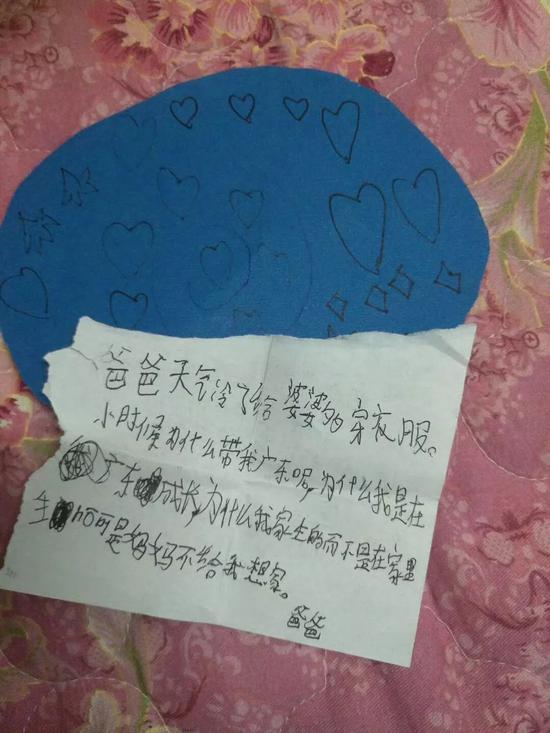 爸爸天气冷了给婆婆多的穿衣服。
小时候为什么带我广东呢,为什么我是在
广东成长,为什么我家生的而不是在家里
生 可是妈妈不给我想家。
爸爸